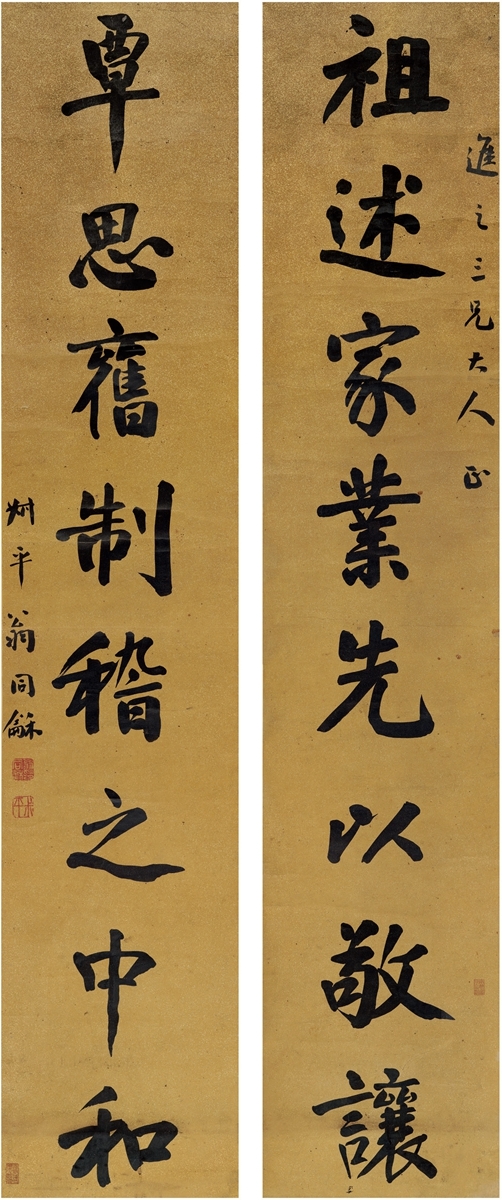 進之三兄大人正
祖述家業先以敬讓
覃思舊制稽之中和
叔平翁同龢